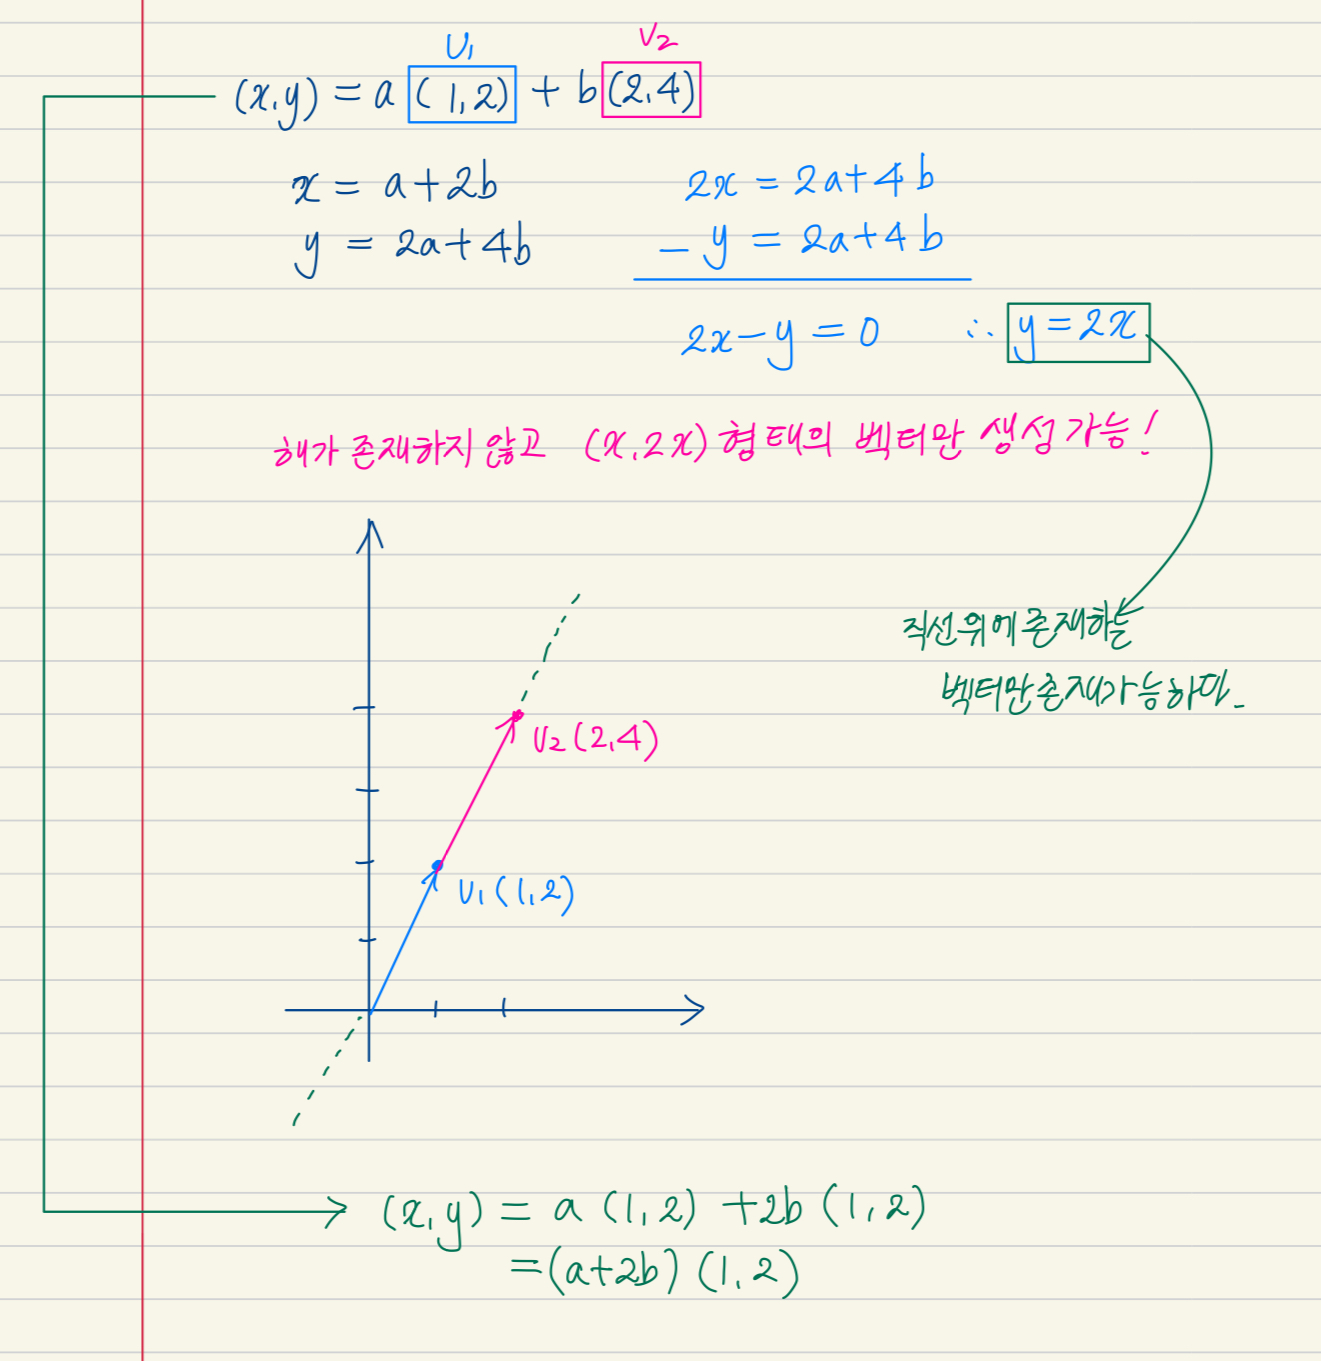 v₁ v₂
(x,y) = a (1,2) + b (2,4)
x = a+2b 2x = 2a+4b
y = 2a+4b - y = 2a+4b
2x-y = 0 ∴ y=2x
해가 존재하지 않고 (x,2x) 형태의 벡터만 생성가능!
직선위에 존재하는
벡터만 존재가능하다.
v₂(2,4)
v₁(1,2)
(x,y) = a (1,2) +2b (1,2)
=(a+2b) (1,2)